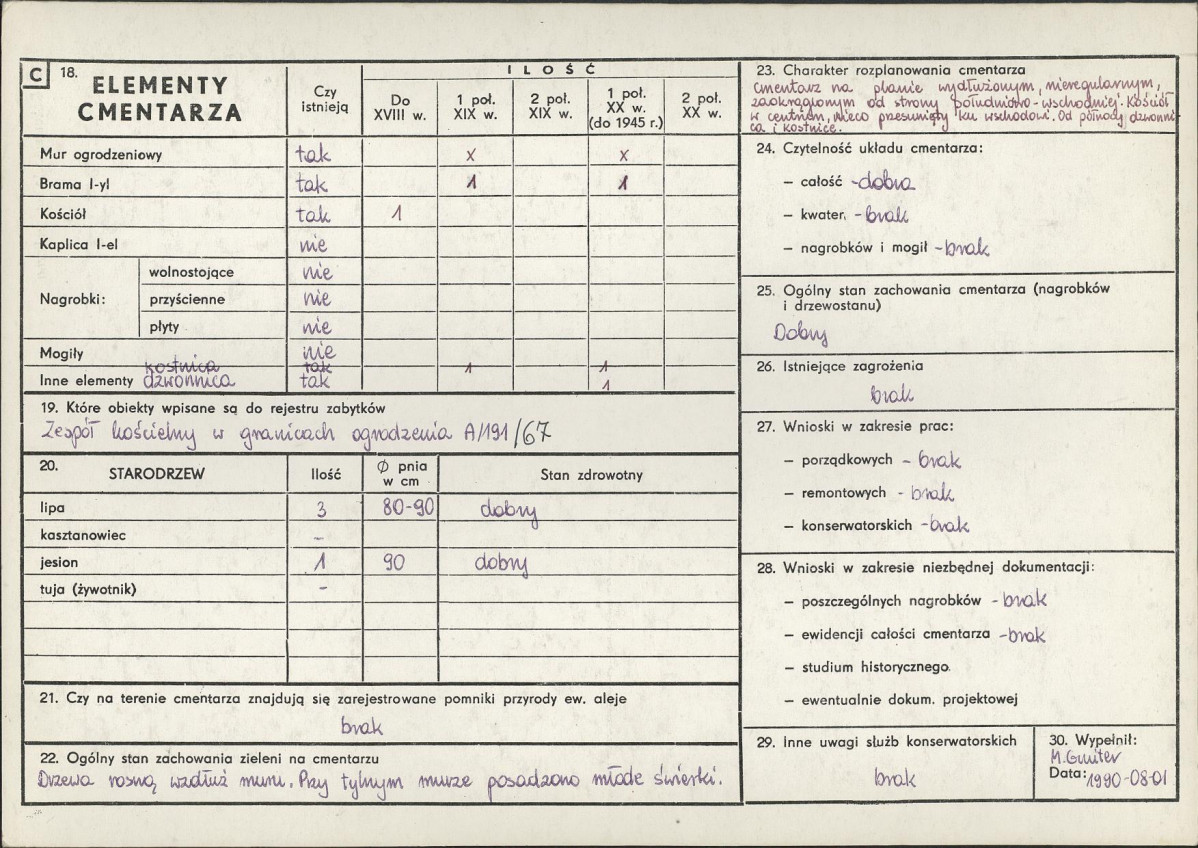 C 18. ELEMENTY CMENTARZA
Czy istnieją
ILOŚĆ
Do XVIII w.
1 poł. XIX w.
2 poł. XIX w.
1 poł. XX w. (do 1945 r.)
2 poł. XX w.
Mur ogrodzeniowy tak x x
Brama I-yl tak 1 1
Kościół tak 1
Kaplica I-el nie
Nagrobki: wolnostojące nie
przyścienne nie
płyty nie
Mogiły nie
kostnica tak 1 1
Inne elementy dzwonnica tak 1
19. Które obiekty wpisane są do rejestru zabytków
Zespół kościelny w granicach ogrodzenia A/191/67
20. STARODRZEW Ilość Ø pnia w cm Stan zdrowotny
lipa 3 80-90 dobry
kasztanowiec –
jesion 1 90 dobry
tuja (żywotnik) –
21. Czy na terenie cmentarza znajdują się zarejestrowane pomniki przyrody ew. aleje
brak
22. Ogólny stan zachowania zieleni na cmentarzu
Drzewa rosną wzdłuż muru. Przy tylnym murze posadzono młode świerki.
23. Charakter rozplanowania cmentarza
Cmentarz na planie wydłużonym, nieregularnym,
zaokrąglonym od strony południowo-wschodniej. Kościół
w centrum, nieco przesunięty ku wschodowi. Od północy dzwonni
ca i kostnice.
24. Czytelność układu cmentarza:
– całość - dobra
– kwater. - brak
– nagrobków i mogił - brak
25. Ogólny stan zachowania cmentarza (nagrobków
i drzewostanu)
Dobry
26. Istniejące zagrożenia
brak
27. Wnioski w zakresie prac:
– porządkowych - brak
– remontowych - brak
– konserwatorskich - brak
28. Wnioski w zakresie niezbędnej dokumentacji:
– poszczególnych nagrobków - brak
– ewidencji całości cmentarza - brak
– studium historycznego
– ewentualnie dokum. projektowej
29. Inne uwagi służb konserwatorskich
brak
30. Wypełnił:
M.
Data: 1990-08-01